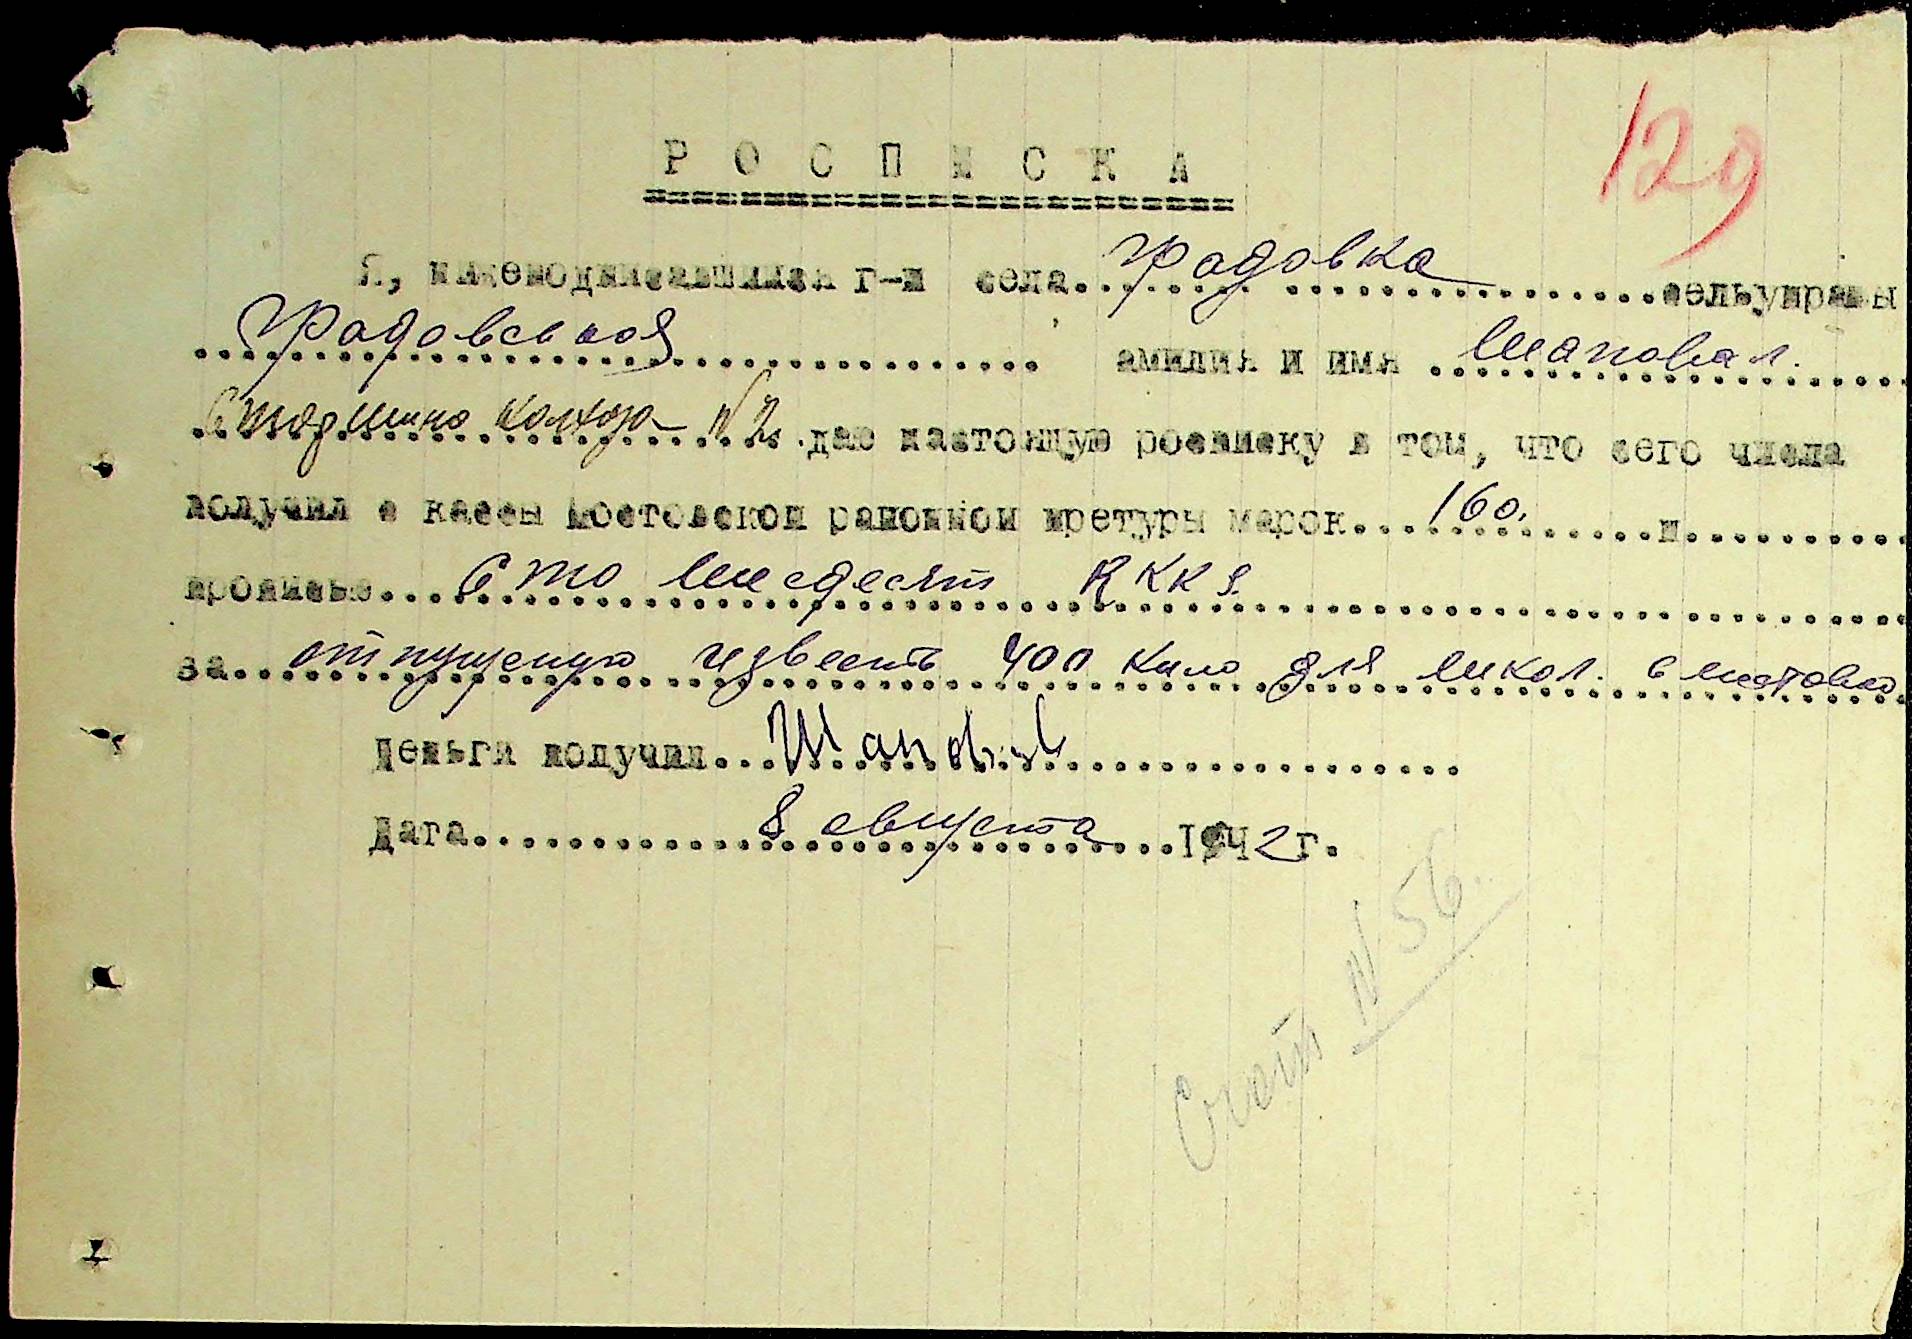 129
Р О С П И С К А
Я, нижеподписавшийся г-н села Градовка сельуправы
Градовськоя амилия и имя Шаповал.
Старшина колхоза N 2 даю настоящую росписку в том, что сего числа
получил с кассы Мостовской районной претуры марок 160. п
прописью Сто шисдесят RKKS.
за отпущеную известь 400 кило для школ. в мостовко
Деньги получил Шаповал
Дата 8 августа 1942 г.
Счет N 56.